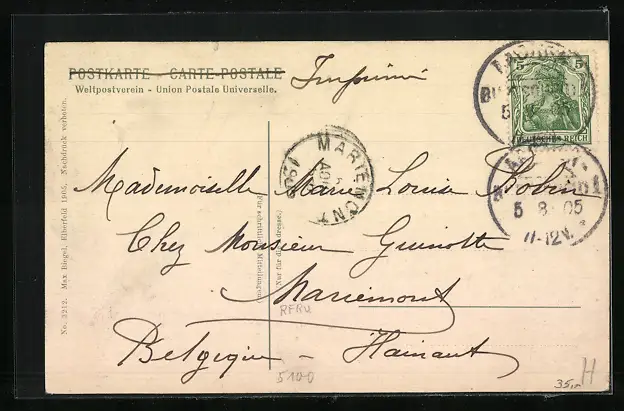 POSTKARTE - CARTE-POSTALE
Weltpostverein - Union Postale Universelle.
Imprimé
5 5
DEUTSCHES REICH
5 8 05
11-12V.
MARIEMONT
1905
Mademoiselle Marie Louise
Chez Monsieur Guinotte
Mariemont
Belgique - Hainaut
Für schriftliche Mitteilungen
(Nur für die Adresse.)
No. 3212. Max Biegel, Elberfeld 1905. Nachdruck verboten.
RFRU
5100
35.-
H